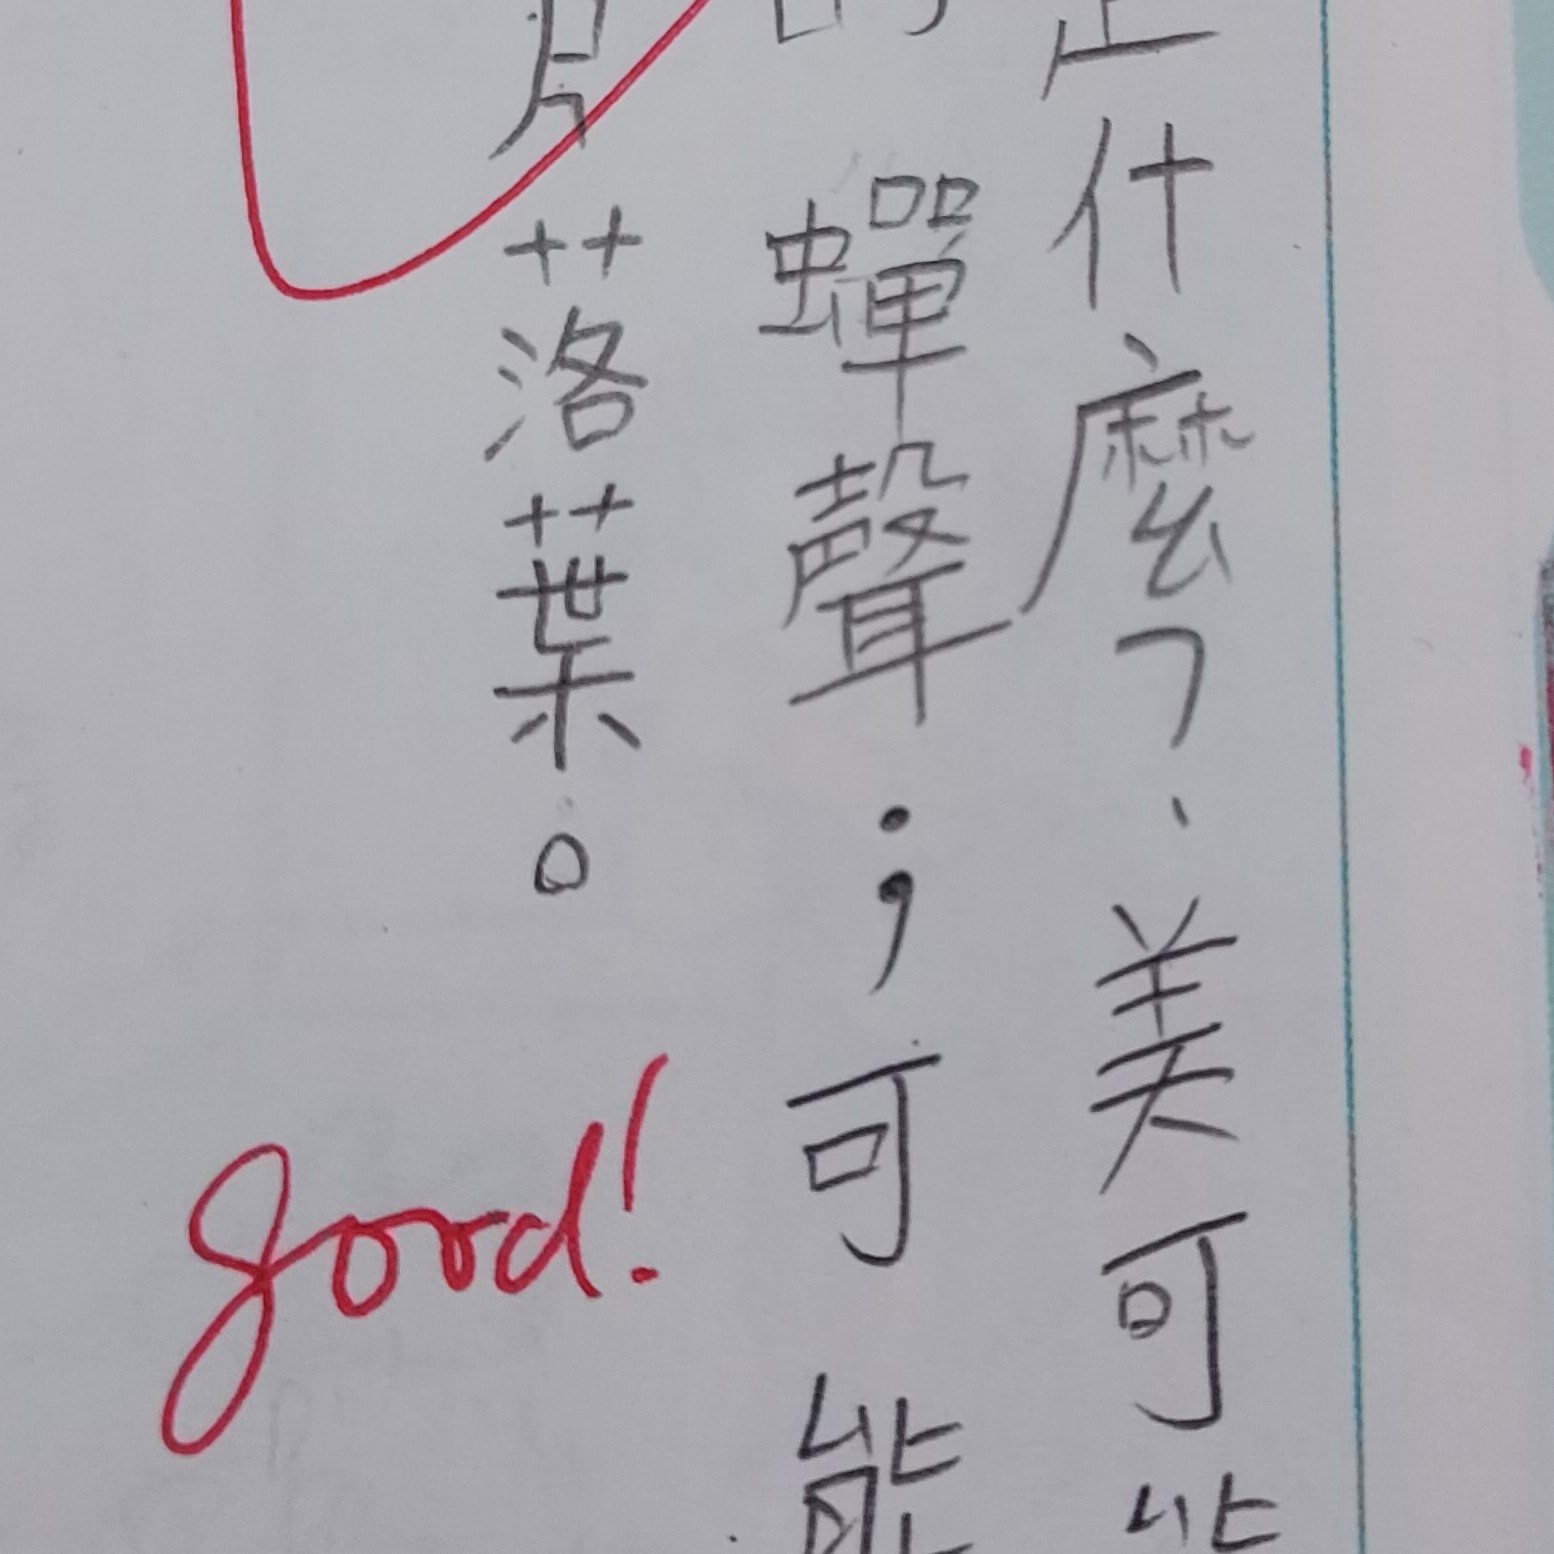 什麼？美可能
蟬聲；可能
片落葉。
good!